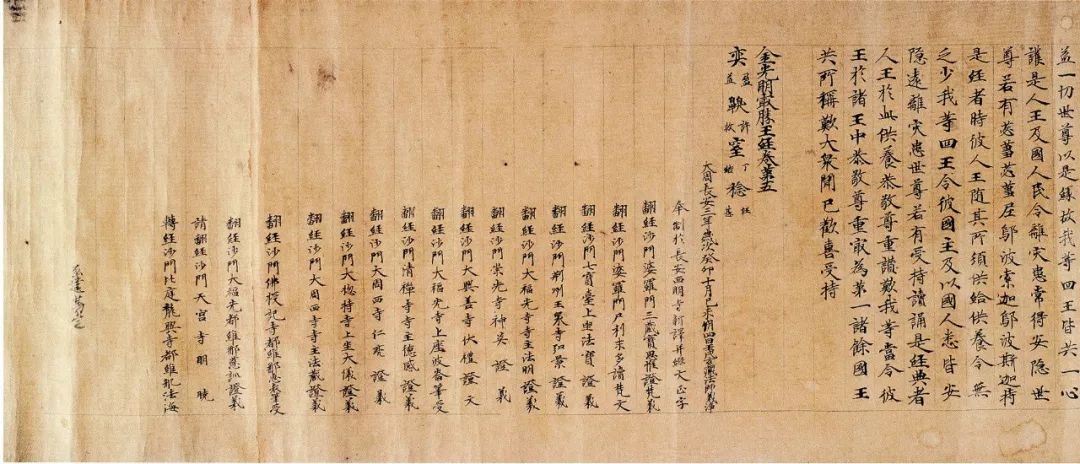 益一切世尊以是緣故我等四王皆共一心
護是人王及國人民令離灾患常得安隱世
尊若有苾蒭苾蒭尼鄔波索加鄔波斯迦持
是經者時彼人王随其所須供給供養令無
乏少我等四王令彼國主及以國人悉皆安
隐遠離灾患世尊若有受持讀誦是經典者
人王於此供養恭敬尊重讃歎我等當令彼
王於諸王中恭敬尊重冣為第一諸餘國王
共所稱歎大衆聞已歡喜受持
金光明冣勝王經卷第五
大周長安三年歲次癸卯十月己未朔四日壬戌三藏法師義淨
奉 制於長安西明寺新譯并綴文正字
翻經沙門婆羅門三藏寶思惟證梵義
翻經沙門婆羅門尸利末多讀梵文
翻經沙門七寶臺上坐法寶證義
翻經沙門荆州玉泉寺弘景證義
翻經沙門大福先寺寺主法明證義
翻經沙門崇光寺神英證義
翻經沙門大興善寺伏禮證文
翻經沙門大福先寺上座波崙筆受
翻經沙門清禪寺寺主德感證義
翻經沙門大周西寺仁亮證義
翻經沙門大揔持寺上坐大儀證義
翻經沙門大周西寺寺主法藏證義
翻經沙門佛授記寺都維那惠表筆受
翻經沙門大福先寺都維那慈訓證義
請翻經沙門天宮寺明曉
轉經沙門北庭龍興寺都維那法海